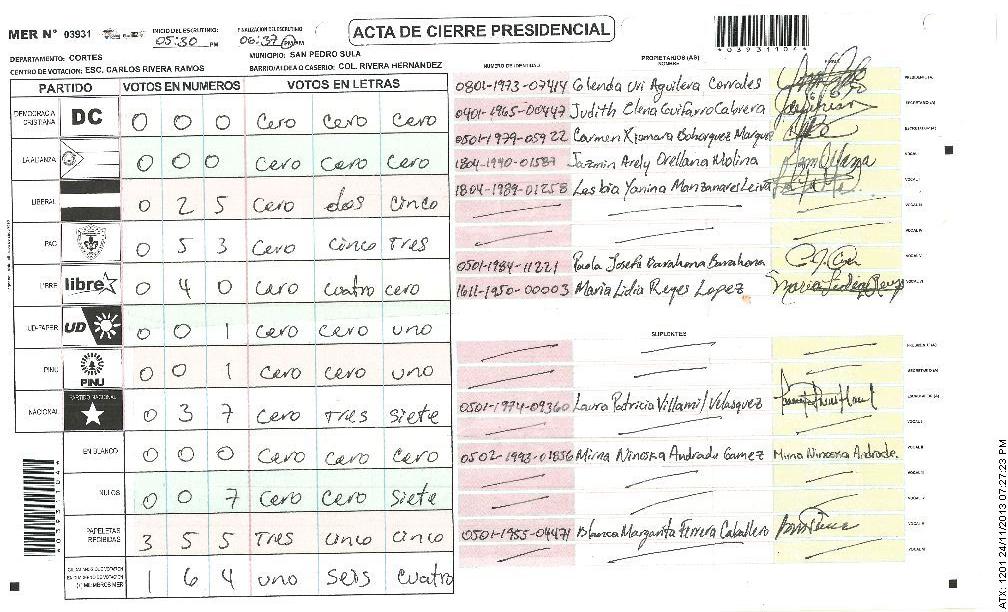 MER N° 03931
INICIO DEL ESCRUTINIO: 05:30 PM
FINALIZACION DEL ESCRUTINIO 06:37 PM
ACTA DE CIERRE PRESIDENCIAL
4039311044
DEPARTAMENTO: CORTES
MUNICIPIO: SAN PEDRO SULA
CENTRO DE VOTACION: ESC. CARLOS RIVERA RAMOS
BARRIO/ALDEA O CASERIO: COL. RIVERA HERNANDEZ
PARTIDO VOTOS EN NUMEROS VOTOS EN LETRAS
DEMOCRACIA CRISTIANA DC 0 0 0 Cero Cero Cero
LA ALIANZA 0 0 0 Cero Cero Cero
LIBERAL 0 2 5 Cero dos cinco
PAC 0 5 3 Cero cinco Tres
LIBRE libre 0 4 0 Cero cuatro cero
UD-FAPER UD 0 0 1 Cero cero uno
PINU PINU 0 0 1 Cero cero uno
NACIONAL PARTIDO NACIONAL 0 3 7 Cero Tres Siete
EN BLANCO 0 0 0 Cero Cero Cero
NULOS 0 0 7 Cero Cero Siete
PAPELETAS RECIBIDAS 3 5 5 Tres cinco cinco
1 6 4 uno seis cuatro
PROPIETARIOS (AS)
NUMERO DE IDENTIDAD NOMBRE FIRMA
0801-1973-07414 Glenda Uri Aguilera Corrales PRESIDENTE (A)
0401-1965-00447 Judith Elena Guifarro Cabrera SECRETARIO (A)
0501-1979-05922 Carmen Xiomara Bohorquez Marquez ESCRUTADOR (A)
1804-1990-01587 Jazmin Arely Orellana Molina VOCAL I
1804-1989-01258 Lesbia Yanina Manzanares Leiva VOCAL II
VOCAL III
VOCAL IV
0501-1984-11221 Paola Josefa Barahona Barahona VOCAL V
1611-1950-00003 Maria Lidia Reyes Lopez VOCAL VI
SUPLENTES
PRESIDENTE (A)
SECRETARIO (A)
0501-1974-09360 Laura Patricia Villamil Velasquez ESCRUTADOR (A)
VOCAL I
0502-1993-01856 Mirna Ninoska Andrade Gamez Mirna Ninoska Andrade. VOCAL II
VOCAL III
VOCAL IV
0501-1955-04471 Blanca Margarita Ferrera Caballero VOCAL V
VOCAL VI
ATX: 1201 24/11/2013 07:27:23 PM